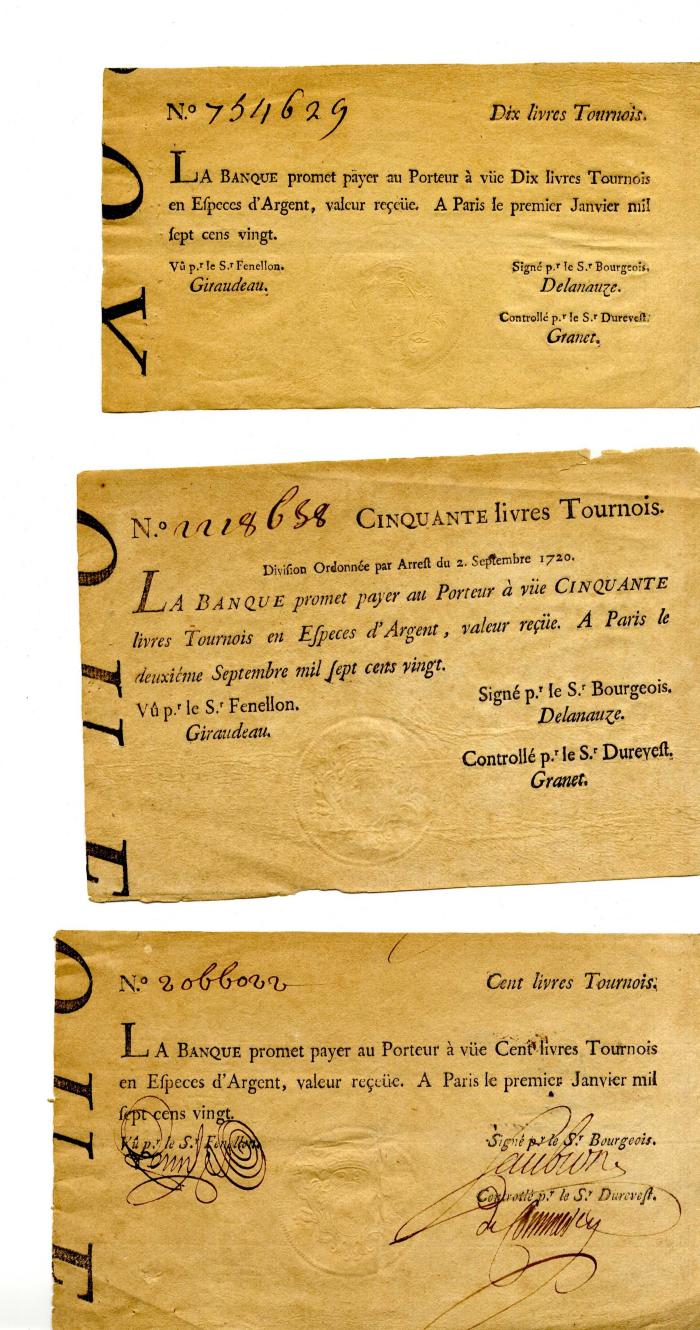 N.º 754629 Dix livres Tournois.
LA BANQUE promet päyer au Porteur à vüe Dix livres Tournois
en Eſpeces d'Argent, valeur reçeüe. A Paris le premier Janvier mil
ſept cens vingt.
Vû p.r le S.r Fenellon. Signé p.r le S.r Bourgeois.
Giraudeau. Delanauze.
Controllé p.r le S.r Dureveſt.
Granet.
N.º 2218688 CINQUANTE livres Tournois.
Diviſion Ordonnée par Arreſt du 2. Septembre 1720.
LA BANQUE promet payer au Porteur à vüe CINQUANTE
livres Tournois en Eſpeces d'Argent, valeur reçüe. A Paris le
deuxiéme Septembre mil ſept cens vingt.
Vû p.r le S.r Fenellon. Signé p.r le S.r Bourgeois.
Giraudeau. Delanauze.
Controllé p.r le S.r Dureveſt.
Granet.
N.º 2066022 Cent livres Tournois.
LA BANQUE promet payer au Porteur à vüe Cent livres Tournois
en Eſpeces d'Argent, valeur reçeüe. A Paris le premier Janvier mil
ſept cens vingt.
Vû p.r le S.r Fenellon. Signé p.r le S.r Bourgeois.
Controllé p.r le S.r Dureveſt.